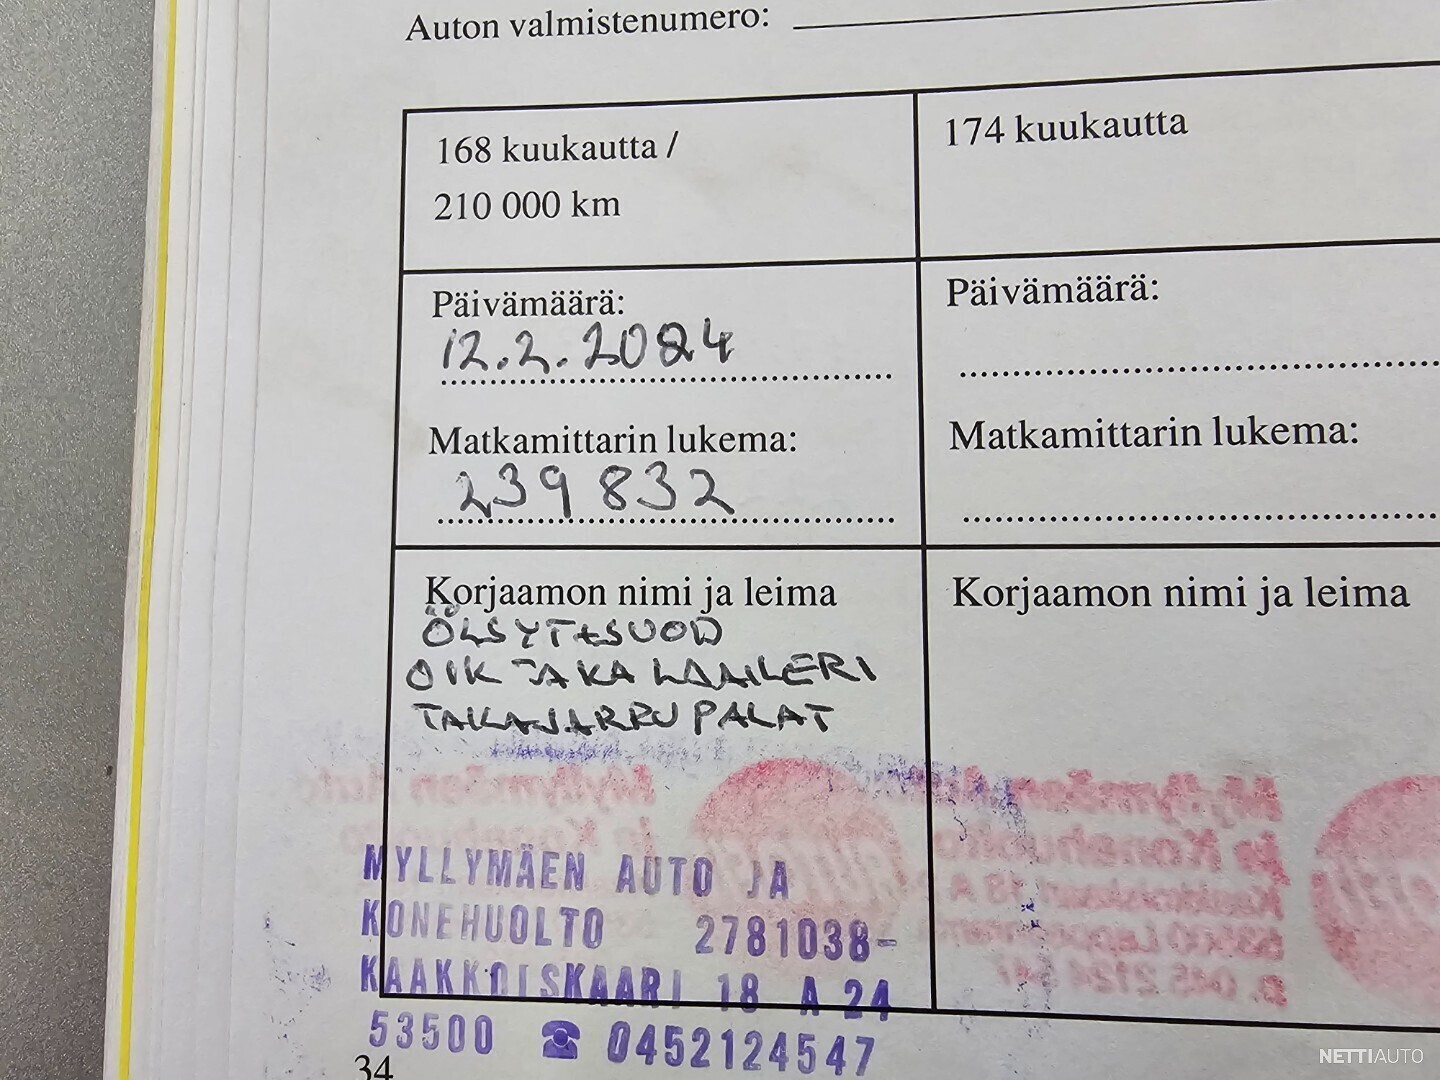 Auton valmistenumero:
168 kuukautta /
210 000 km
174 kuukautta
Päivämäärä:
12.2.2024
Päivämäärä:
Matkamittarin lukema:
239 832
Matkamittarin lukema:
Korjaamon nimi ja leima
Korjaamon nimi ja leima
OIK TAKA LAAKERI
TAKAJARRUPALAT
MYLLYMÄEN AUTO JA
KONEHUOLTO 2781038-
KAAKKOISKAARI 18 A 24
53500 ☎ 0452124547
34
NETTIAUTO